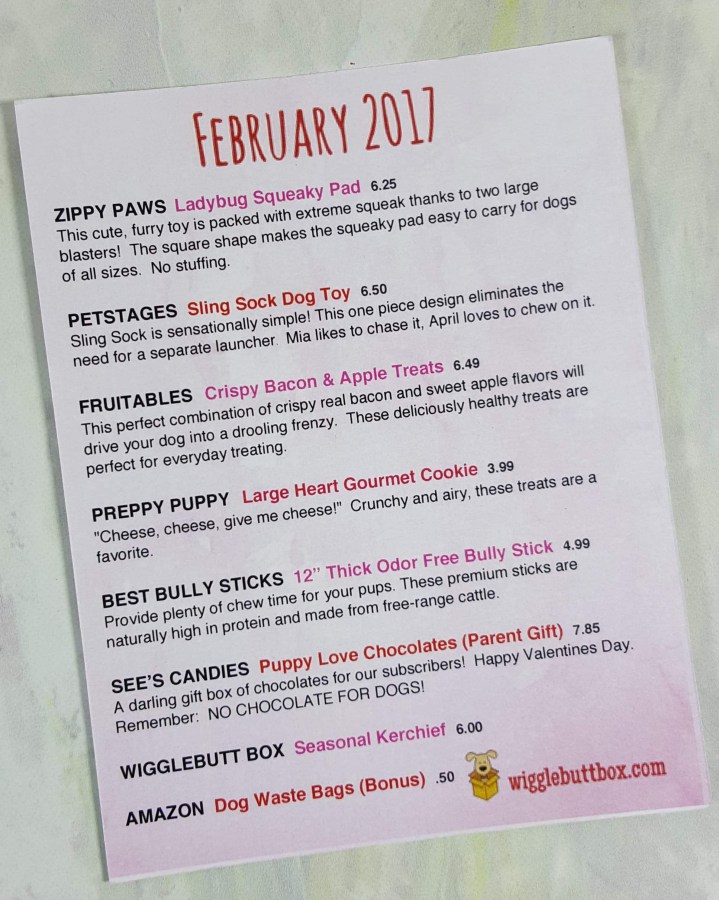 FEBRUARY 2017
ZIPPY PAWS Ladybug Squeaky Pad 6.25
This cute, furry toy is packed with extreme squeak thanks to two large
blasters! The square shape makes the squeaky pad easy to carry for dogs
of all sizes. No stuffing.
PETSTAGES Sling Sock Dog Toy 6.50
Sling Sock is sensationally simple! This one piece design eliminates the
need for a separate launcher. Mia likes to chase it, April loves to chew on it.
FRUITABLES Crispy Bacon & Apple Treats 6.49
This perfect combination of crispy real bacon and sweet apple flavors will
drive your dog into a drooling frenzy. These deliciously healthy treats are
perfect for everyday treating.
PREPPY PUPPY Large Heart Gourmet Cookie 3.99
"Cheese, cheese, give me cheese!" Crunchy and airy, these treats are a
favorite.
BEST BULLY STICKS 12” Thick Odor Free Bully Stick 4.99
Provide plenty of chew time for your pups. These premium sticks are
naturally high in protein and made from free-range cattle.
SEE'S CANDIES Puppy Love Chocolates (Parent Gift) 7.85
A darling gift box of chocolates for our subscribers! Happy Valentines Day.
Remember: NO CHOCOLATE FOR DOGS!
WIGGLEBUTT BOX Seasonal Kerchief 6.00
AMAZON Dog Waste Bags (Bonus) .50
wigglebuttbox.com